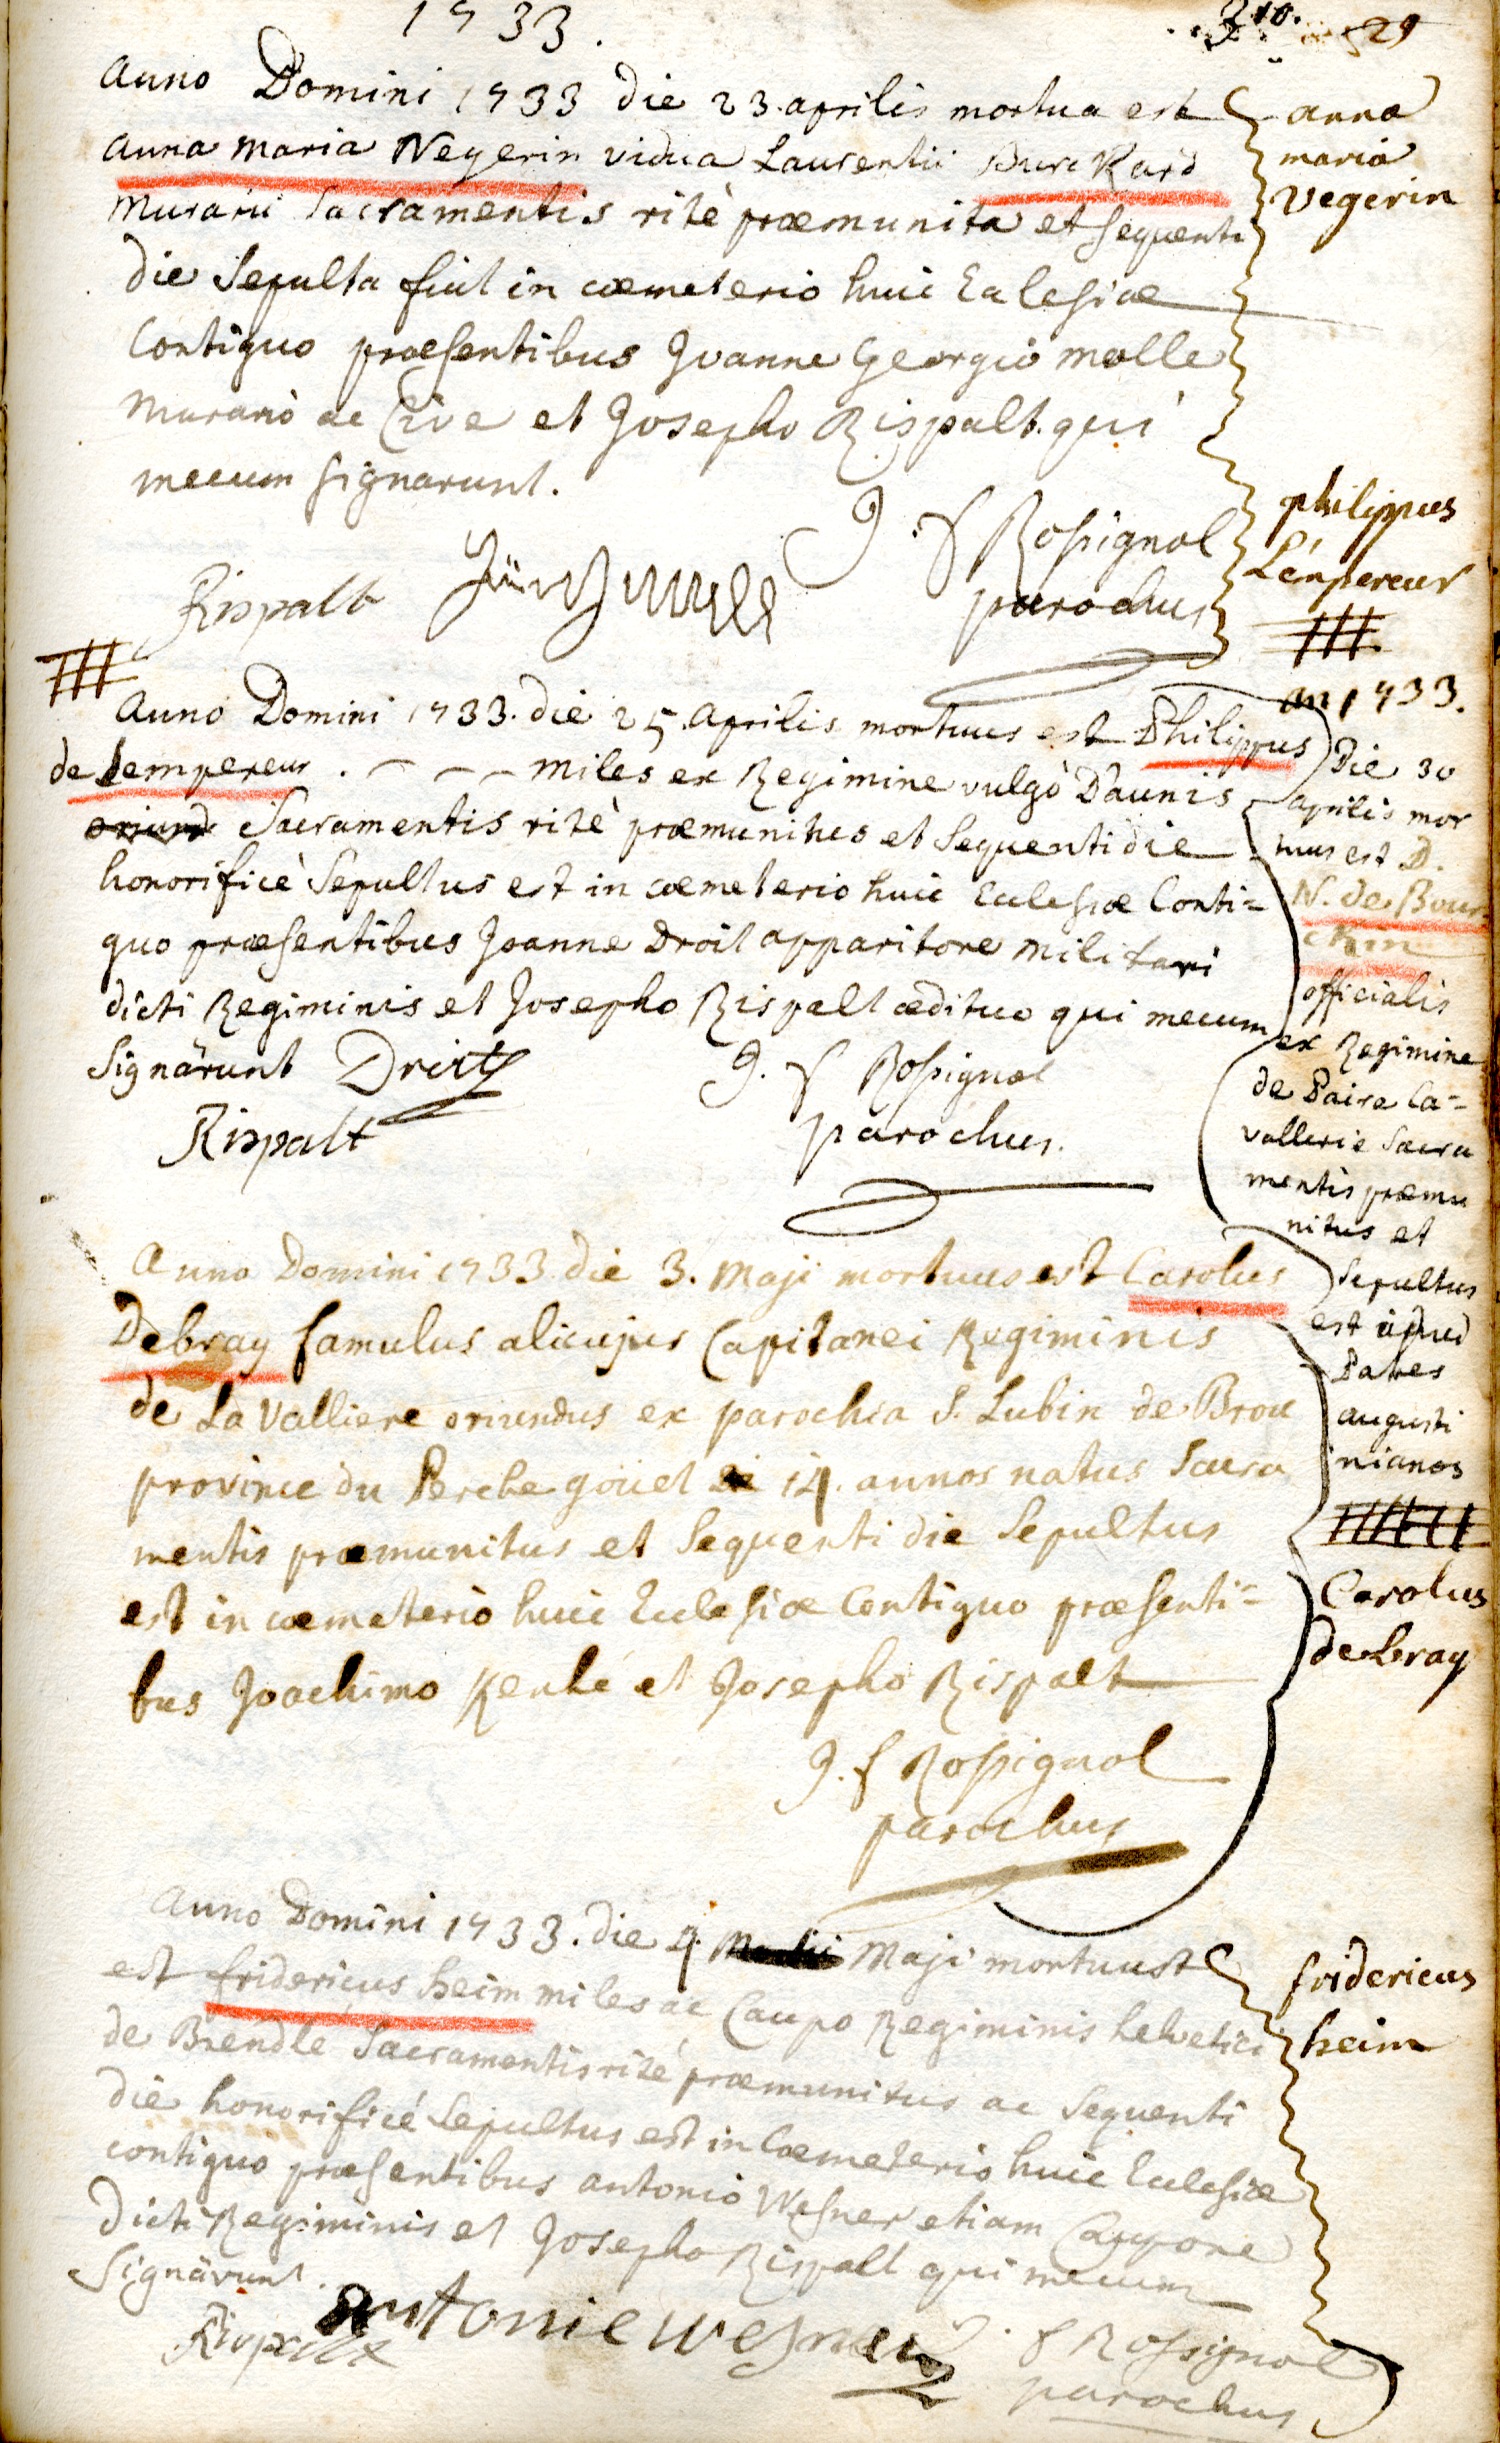 1733.
310. 529
Anno Domini 1733 die 23. aprilis mortua est
Anna Maria Negerin vidua Laurentii Burckard
Murarii Sacramentis ritè præmunita et sequenti
die Sepulta fuit in cœmeterio huic Eclesiæ
Contiguo præsentibus Joanne Georgio Molle
Murario ac Cive et Josepho Rispalt. qui
mecum signarunt.
J. f Rossignol
parochus
Rispalt
anna
maria
Vegerin
Anno Domini 1733. die 25. Aprilis mortuus est Philippus
de Lempereur . — — — miles ex Regimine vulgò D'aunis
oriund Sacramentis ritè præmunitus et Sequenti die
honorificè Sepultus est in cœmeterio huic Ecclesiæ Conti=
guo præsentibus Joanne Droit apparitore militari
dicti Regiminis et Josepho Rispalt ædituo qui mecum
Signârunt Droit
J. f Rossignol
parochus.
Rispalt
philippus
L'énpereur
an 1733.
Die 30
aprilis mor
tuus est D.
N. de Bour
chin
officialis
ex Regimine
de Paire Ca=
vallerie Sacra
mentis præmu
nitus et
Sepultus
est apud
Patres
augusti
nianos
Anno Domini 1733 die 3. Maji mortuus est Carolus
Debray famulus alicujus Capitanei Regiminis
de La Valliere oriundus ex parochia S. Lubin de Brou
province du Perche goüet 14. annos natus Sacra
mentis præmunitus et Sequenti die Sepultus
est in cœmeterio huic Ecclesiæ Contiguo præsenti=
bus Joachimo Kenlé et Josepho Rispalt
J. f Rossignol
parochus
Carolus
debray
Anno Domini 1733. die 4. Maji mortuust
est fridericus heim miles ac Caupo Regiminis helvetici
de Brendlé Sacramentis rité præmunitus ac Sequenti
die honorificé Sepultus est in Cœmeterio huic Ecclesiæ
contiguo præsentibus antonio Wesner etiam Caupone
Dicti Regiminis et Josepho Rispalt qui mecum
Signârunt.
Rispalt antonie wesner
J. f Rossignol
parochus
fridericus
heim